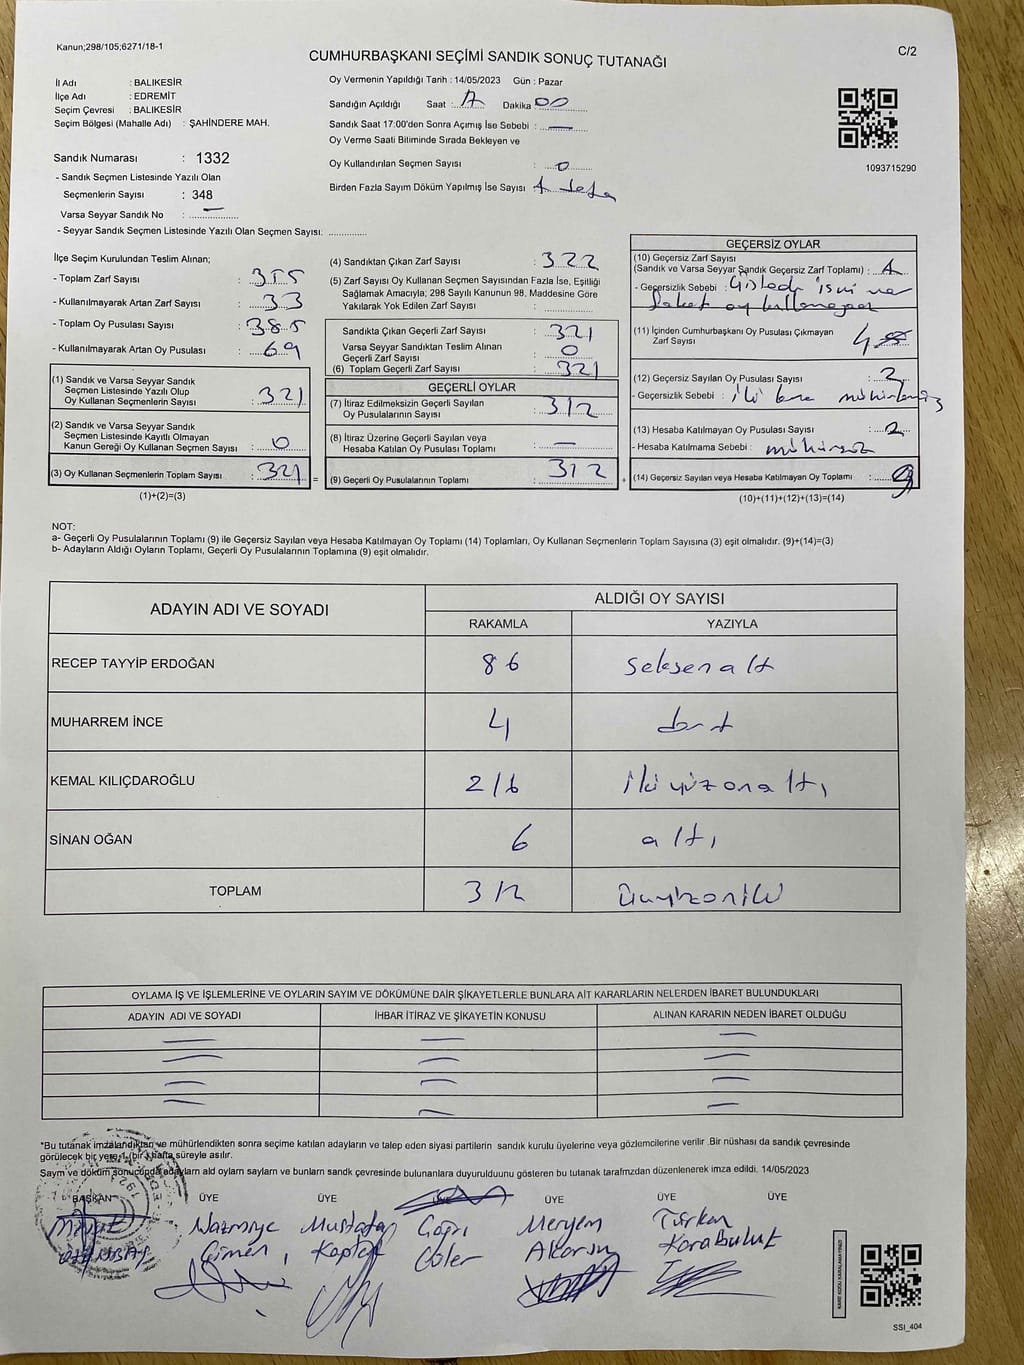 Kanun;298/105;6271/18-1
C/2
CUMHURBAŞKANI SEÇİMİ SANDIK SONUÇ TUTANAĞI
İl Adı : BALIKESİR
İlçe Adı : EDREMİT
Seçim Çevresi : BALIKESİR
Seçim Bölgesi (Mahalle Adı) : ŞAHİNDERE MAH.
Sandık Numarası : 1332
- Sandık Seçmen Listesinde Yazılı Olan
Seçmenlerin Sayısı : 348
Varsa Seyyar Sandık No : —
- Seyyar Sandık Seçmen Listesinde Yazılı Olan Seçmen Sayısı: ..............
Oy Vermenin Yapıldığı Tarih : 14/05/2023 Gün : Pazar
Sandığın Açıldığı Saat : 17 Dakika 00
Sandık Saat 17:00'den Sonra Açımış İse Sebebi : —
Oy Verme Saati Bitiminde Sırada Bekleyen ve
Oy Kullandırılan Seçmen Sayısı : 0
Birden Fazla Sayım Döküm Yapılmış İse Sayısı 1 defa
1093715290
İlçe Seçim Kurulundan Teslim Alınan;
- Toplam Zarf Sayısı : 355
- Kullanılmayarak Artan Zarf Sayısı : 33
- Toplam Oy Pusulası Sayısı : 385
- Kullanılmayarak Artan Oy Pusulası : 69
(1) Sandık ve Varsa Seyyar Sandık
Seçmen Listesinde Yazılı Olup
Oy Kullanan Seçmenlerin Sayısı : 321
(2) Sandık ve Varsa Seyyar Sandık
Seçmen Listesinde Kayıtlı Olmayan
Kanun Gereği Oy Kullanan Seçmen Sayısı : 0
(3) Oy Kullanan Seçmenlerin Toplam Sayısı : 321
(1)+(2)=(3)
(4) Sandıktan Çıkan Zarf Sayısı : 322
(5) Zarf Sayısı Oy Kullanan Seçmen Sayısından Fazla İse, Eşitliği
Sağlamak Amacıyla; 298 Sayılı Kanunun 98. Maddesine Göre
Yakılarak Yok Edilen Zarf Sayısı :
Sandıkta Çıkan Geçerli Zarf Sayısı : 321
Varsa Seyyar Sandıktan Teslim Alınan
Geçerli Zarf Sayısı : 0
(6) Toplam Geçerli Zarf Sayısı : 321
GEÇERLİ OYLAR
(7) İtiraz Edilmeksizin Geçerli Sayılan
Oy Pusulalarının Sayısı : 312
(8) İtiraz Üzerine Geçerli Sayılan veya
Hesaba Katılan Oy Pusulası Toplamı : —
= (9) Geçerli Oy Pusulalarının Toplamı : 312
GEÇERSİZ OYLAR
(10) Geçersiz Zarf Sayısı
(Sandık ve Varsa Seyyar Sandık Geçersiz Zarf Toplamı) : 1
- Geçersizlik Sebebi : listede ismi var
fakat oy
(11) İçinden Cumhurbaşkanı Oy Pusulası Çıkmayan
Zarf Sayısı 4
(12) Geçersiz Sayılan Oy Pusulası Sayısı : 2
- Geçersizlik Sebebi : iki kere mühürlenmiş
(13) Hesaba Katılmayan Oy Pusulası Sayısı : 2
- Hesaba Katılmama Sebebi : mühürsüz
+ (14) Geçersiz Sayılan veya Hesaba Katılmayan Oy Toplamı : 9
(10)+(11)+(12)+(13)=(14)
NOT:
a- Geçerli Oy Pusulalarının Toplamı (9) ile Geçersiz Sayılan veya Hesaba Katılmayan Oy Toplamı (14) Toplamları, Oy Kullanan Seçmenlerin Toplam Sayısına (3) eşit olmalıdır. (9)+(14)=(3)
b- Adayların Aldığı Oyların Toplamı, Geçerli Oy Pusulalarının Toplamına (9) eşit olmalıdır.
ADAYIN ADI VE SOYADI
ALDIĞI OY SAYISI
RAKAMLA YAZIYLA
RECEP TAYYİP ERDOĞAN 86 Seksen altı
MUHARREM İNCE 4 dört
KEMAL KILIÇDAROĞLU 216 iki yüz on altı
SİNAN OĞAN 6 altı
TOPLAM 312 Üçyüzoniki
OYLAMA İŞ VE İŞLEMLERİNE VE OYLARIN SAYIM VE DÖKÜMÜNE DAİR ŞİKAYETLERLE BUNLARA AİT KARARLARIN NELERDEN İBARET BULUNDUKLARI
ADAYIN ADI VE SOYADI İHBAR İTİRAZ VE ŞİKAYETİN KONUSU ALINAN KARARIN NEDEN İBARET OLDUĞU
*Bu tutanak imzalandıktan ve mühürlendikten sonra seçime katılan adayların ve talep eden siyasi partilerin sandık kurulu üyelerine veya gözlemcilerine verilir .Bir nüshası da sandık çevresinde
görülecek bir yere 1 (bir) hafta süreyle asılır.
Saym ve döküm sonucunda adayların ald oyların sayların ve bunların sandık çevresinde bulunanlara duyurulduunu gösteren bu tutanak tarafmzdan düzenlenerek imza edildi. 14/05/2023
BAŞKAN ÜYE ÜYE ÜYE ÜYE ÜYE
Nazmiye Mustafa Çağrı Meryem Türkan
Çimen Kaptan Göler Akarsu Karabulut
SSI_404